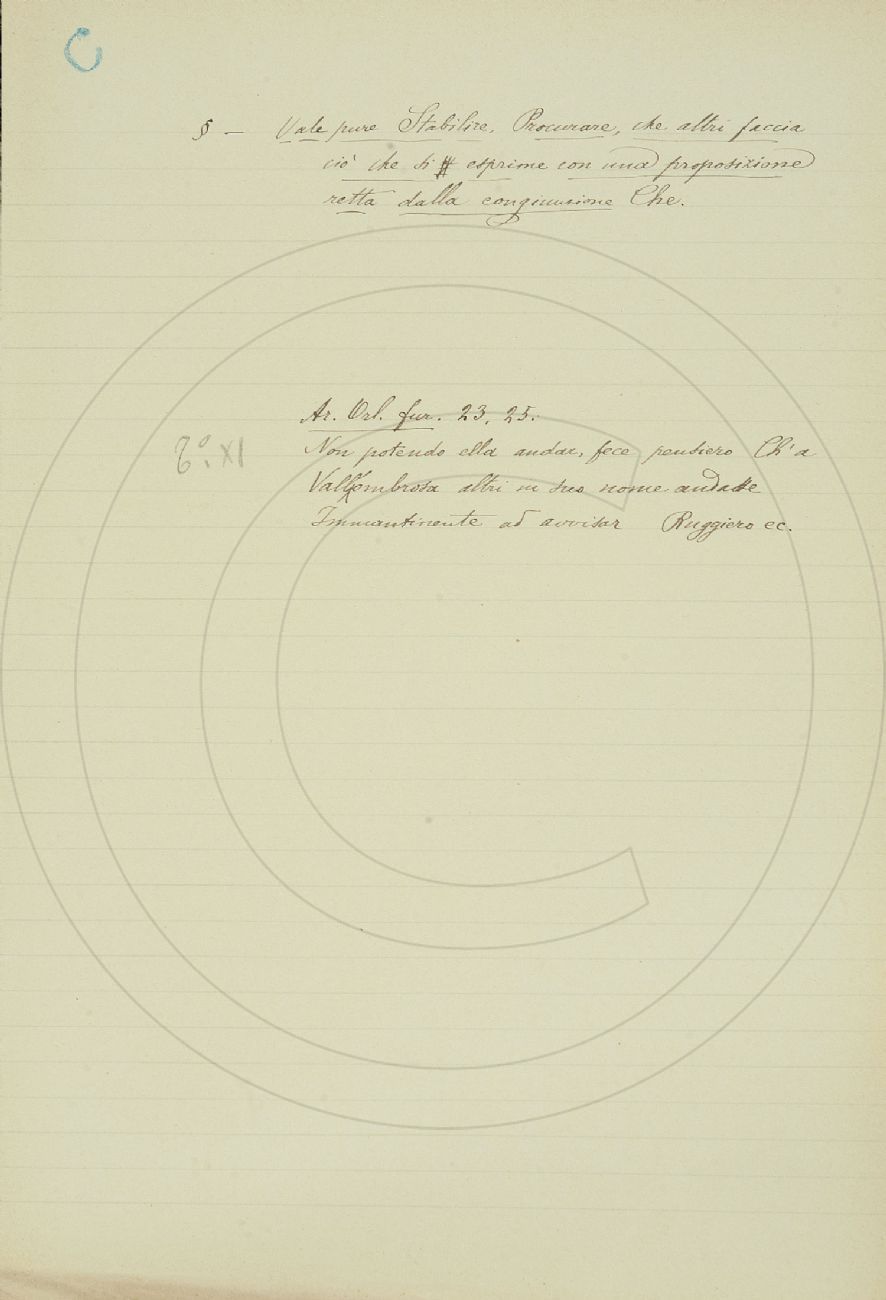 C
§ — Vale pure Stabilire, Procurare, che altri faccia
ciò che si esprime con una proposizione
retta dalla congiunzione Che.
Ar. Orl. fur. 23, 25.
Non potendo ella andar, fece pensiero Ch'a
Vallombrosa altri in suo nome andasse
Immantinente ad avvisar Ruggiero ec.